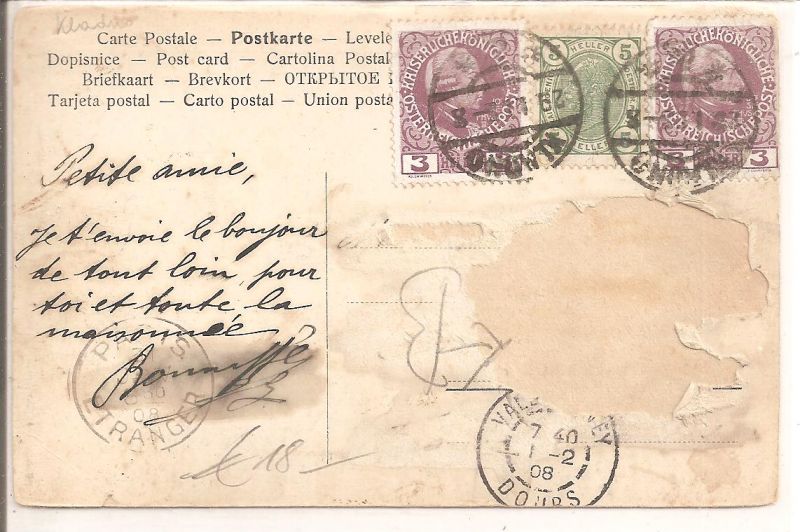 Kladno
Carte Postale – Postkarte – Levele
Dopisnice – Post card – Cartolina Postal
Briefkaart – Brevkort – ОТКРЫТОЕ
Tarjeta postal – Carto postal – Union posta
KAISERLICHEKÖNIGLICHE
ÖSTERREICHISCHE POST
3 3
HELLER
5 5
KLADNO
KAISERLICHEKÖNIGLICHE
ÖSTERREICHISCHE POST
3 3
KLADNO
Petite amie,
Je t'envoie le bonjour
de tout loin, pour
toi et toute la
maisonnée
PARIS
08
ETRANGER
18 –
7 40
1 -2
08
DOUBS